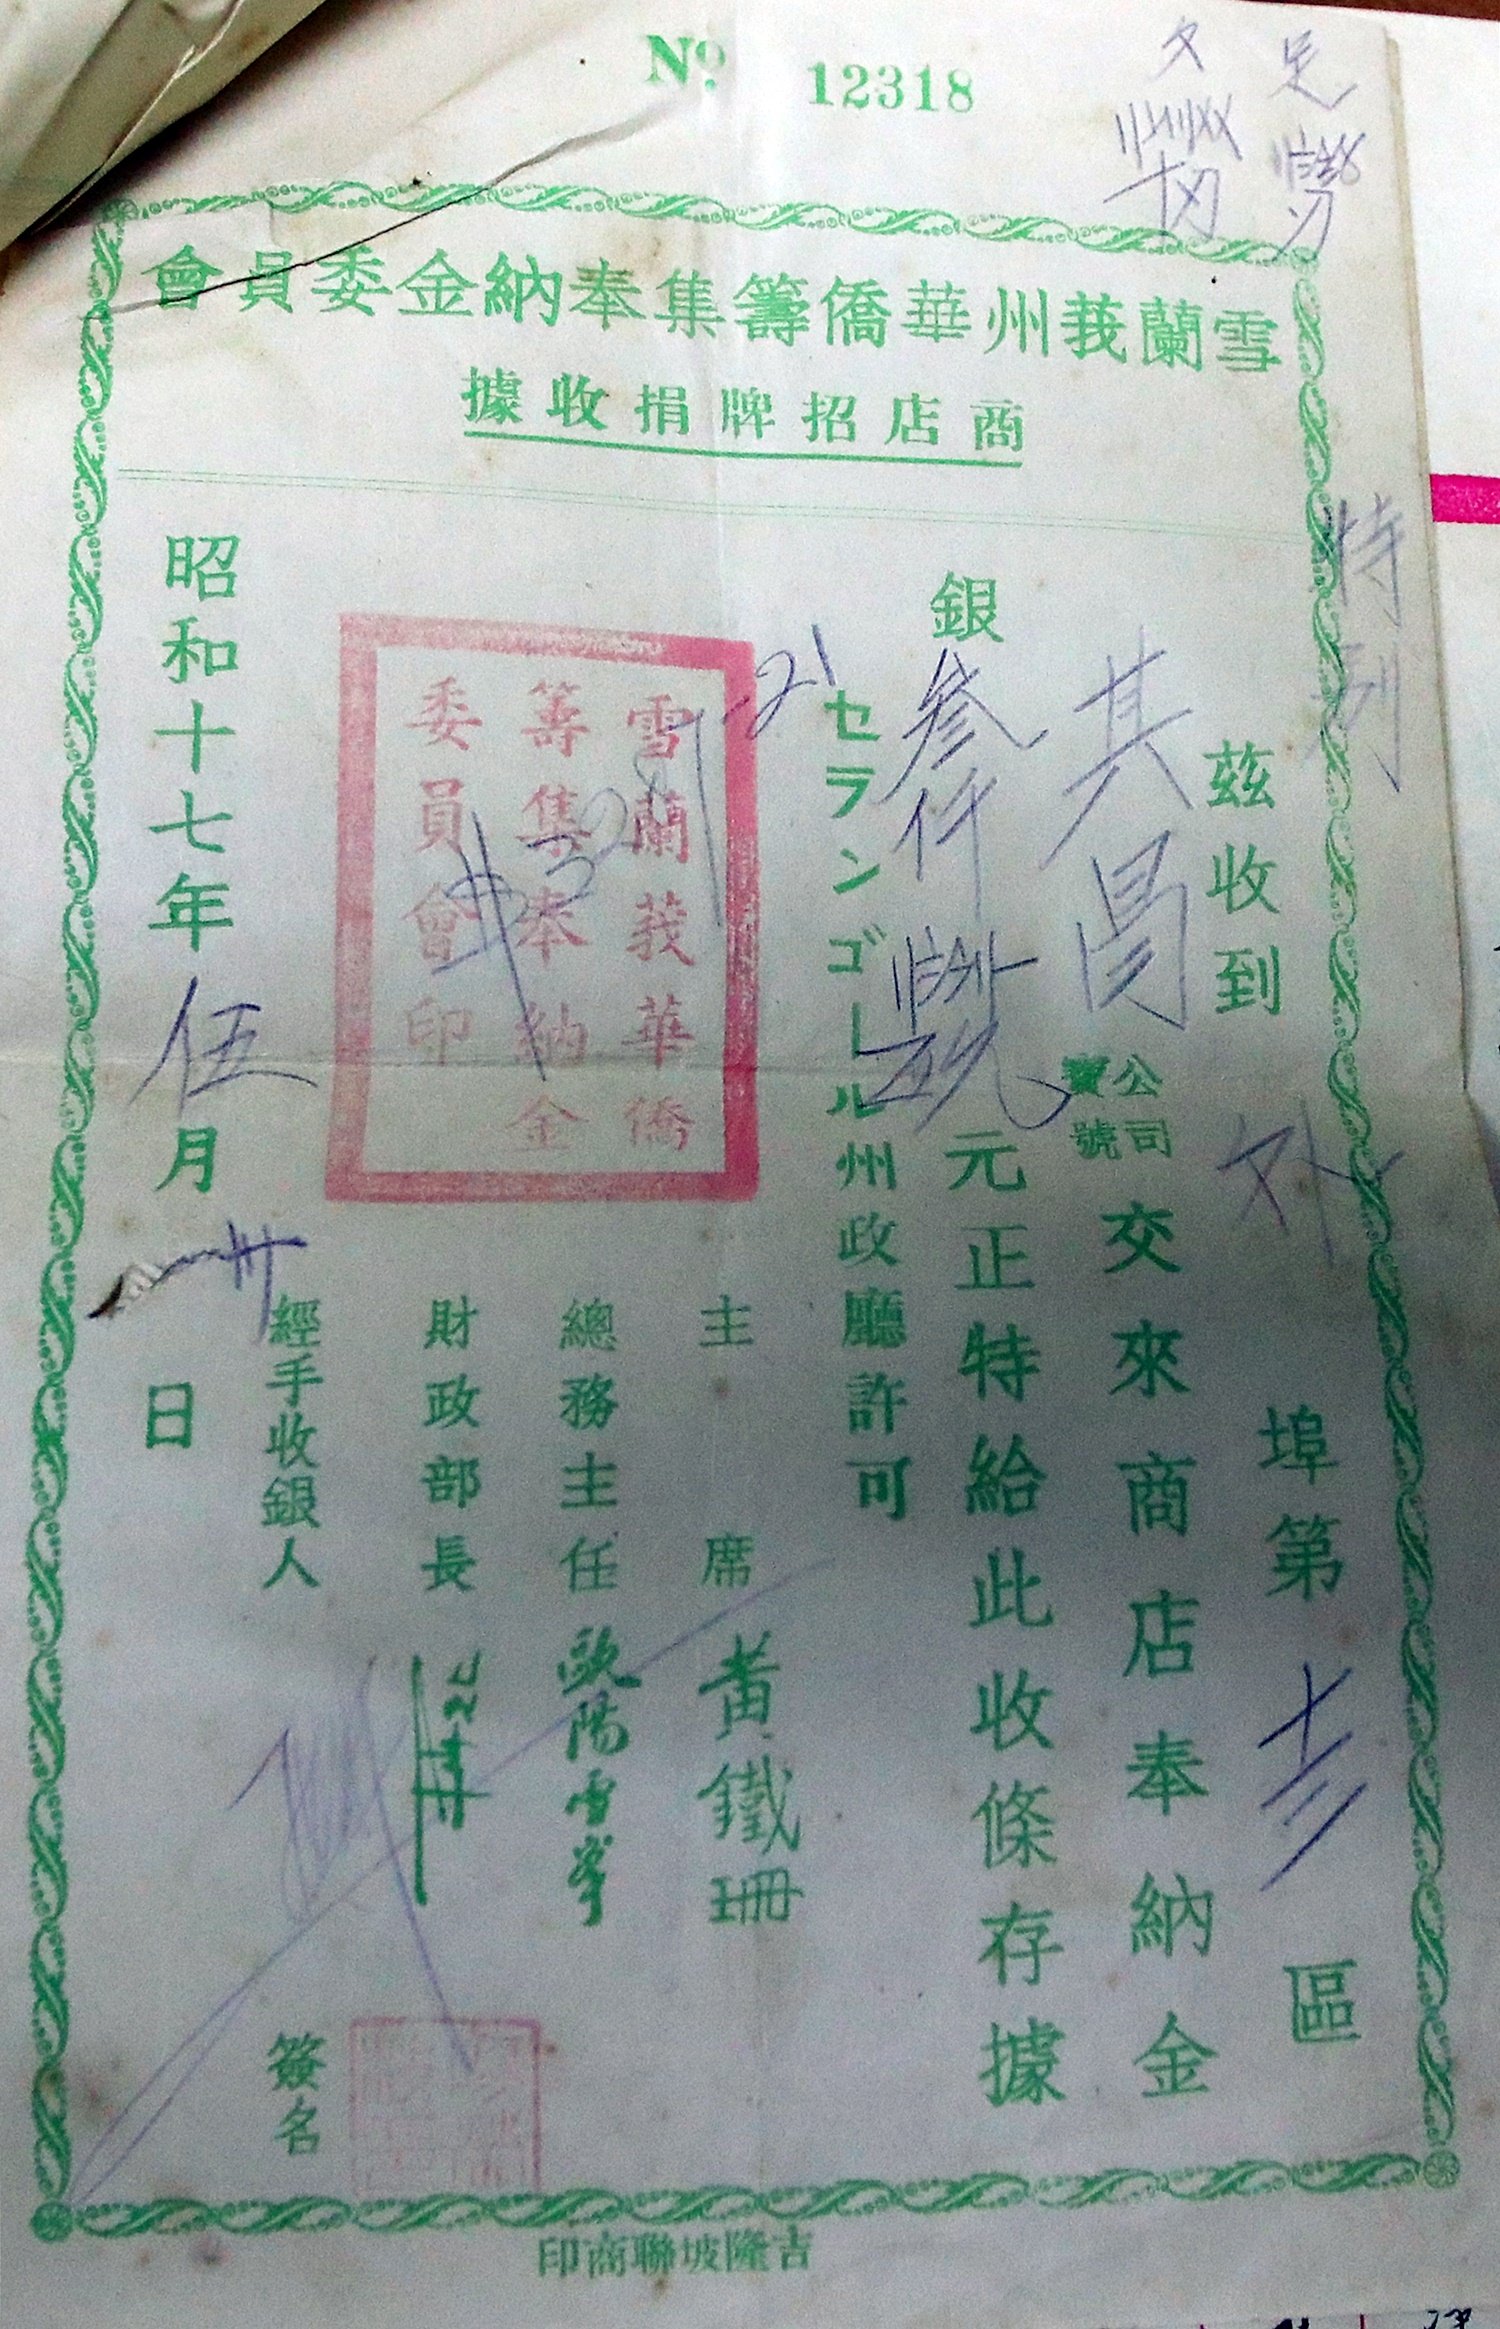 № 12318
雪蘭莪州華僑籌集奉納金委員會
商店招牌捐收據
特別
茲收到 外 埠第 十三 區
其昌 公司 寶號 交來商店奉納金
銀 叄仟 元正特給此收條存據
セランゴール州政廳許可
雪蘭莪華僑
籌集奉納金
委員會印
主席 黃鐵珊
總務主任 歐陽雪峯
財政部長
經手收銀人 簽名
昭和十七年伍月 卅一 日
吉隆坡聯商印